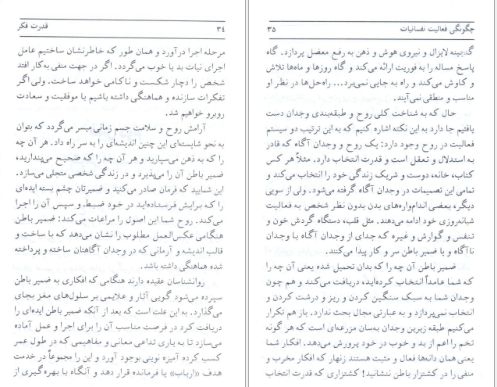 ۳۴ قدرت فکر
مرحله اجرا درآورد و همان طور که خاطرنشان ساختیم عامل
اجرای نیات بد یا خوب می‌گردد. اگر در جهت منفی به‌کار افتد
شخص را دچار شکست و ناکامی خواهد ساخت. ولی اگر
تفکرات سازنده و هماهنگی داشته باشیم با موفقیت و سعادت
روبرو خواهیم شد.
آرامش روح و سلامت جسم زمانی میسر می‌گردد که بتوان
به نحو شایسته‌ای این چنین اندیشه‌ای را به سر راه داد. هر آن چه
را که به ذهن می‌سپارید و هر آن چه را که صحیح می‌پندارید،
ضمیر باطن آن را می‌پذیرد و در زندگی شخصی متجلی می‌سازد.
این شمایید که فرمان صادر می‌کنید و ضمیرتان چشم بسته ایده‌ای
را که برایش فرستاده‌اید در خود ضبط و سپس آن را اجرا
می‌کند. روح شما این اصول را مراعات می‌کند: ضمیر باطن
هنگامی عکس‌العمل مطلوب را نشان می‌دهد که با ساخت و
قالب اندیشه و آرمانی که در وجدان آگاهتان ساخته و پرداخته
شده هماهنگی داشته باشد.
روانشناسان عقیده دارند هنگامی که افکاری به ضمیر باطن
سپرده می‌شود گویی آثار و علایمی بر سلول‌های مغز بجای
می‌گذارد. به این علت است که بعد از آنکه ضمیر باطن ایده‌ای را
دریافت کرد در فرصت مناسب آن را برای اجرا و عمل آماده
می‌سازد تا به یاری تداعی معانی و مفاهیمی که در طول عمر
کسب کرده آمیزه نوینی بوجود آورد و این را مجموعاً در خدمت
هدف «ارباب» یا فرمانده قرار دهد و آنگاه با بهره‌گیری از
چگونگی فعالیت نفسانیات ۳۵
گنجینه لایزال و نیروی هوش و ذهن به رفع معضل پردازد. گاه
پاسخ مساله را به فوریت ارائه می‌کند و گاه روزها و ماه‌ها تلاش
و کاوش می‌کند و راه به جایی نمی‌برد... راه‌حل‌ها در نظر او
مناسب و منطقی نمی‌آیند.
حال که به شناخت کلی روح و طبقه‌بندی وجدان دست
یافتیم جا دارد به این نکته اشاره کنیم که به این ترتیب دو سیستم
فعالیت در روح وجود دارد: یک روح و وجدان آگاه که قادر
به استدلال و تعقل است و قدرت انتخاب دارد. مثلاً هر کس
کتاب، خانه، دوست و شریک زندگی خود را انتخاب می‌کند و
تمامی این تصمیمات در وجدان آگاه گرفته می‌شود. ولی از سویی
دیگر، بعضی اندام‌واره‌های بدن بدون نظر شخص به فعالیت
شبانه‌روزی خود ادامه می‌دهند. مثل قلب، دستگاه گردش خون و
تنفس و گوارش و غیره که جدای از وجدان آگاه با وجدان
ناآگاه و یا ضمیر باطن سر و کار پیدا می‌کنند.
ضمیر باطن آن چه را که بدان تحمیل شده یعنی آن چه را
که شما عامداً انتخاب کرده‌ایده دریافت می‌کند و هم چون
وجدان شما به سبک سنگین کردن و ریز و درشت کردن و
انتخاب نمی‌پردازد و به عبارتی مجال بحث ندارد. باز هم تکرار
می‌کنیم طبقه زیرین وجدان به‌سان مزرعه‌ای است که هر گونه
تخم را اعم از بد و خوب در خود می‌پرورد. افکار شما
یعنی همان دانه‌ها فعال و مثبت هستند زنهار که افکار مخرب و
منفی را در کشتزار باطن ننشانید! کشتزاری که قدرت انتخاب